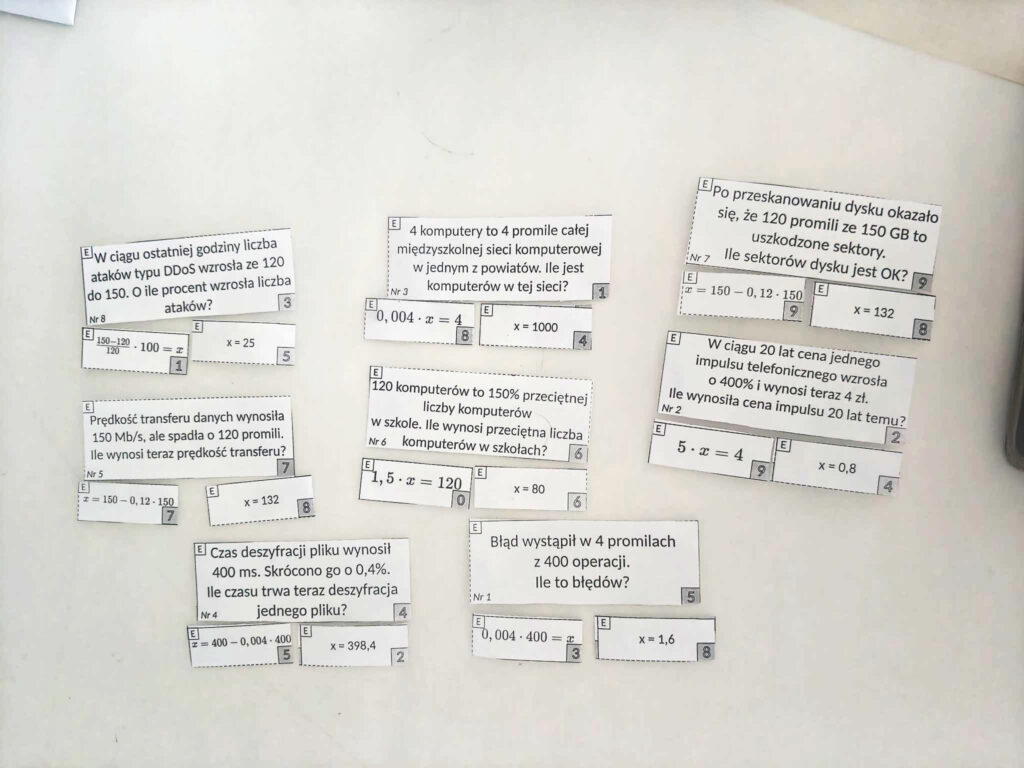 E
W ciągu ostatniej godziny liczba
ataków typu DDoS wzrosła ze 120
do 150. O ile procent wzrosła liczba
ataków?
Nr 8
3
E
150−120/120 · 100 = x
1
E
x = 25
5
E
Prędkość transferu danych wynosiła
150 Mb/s, ale spadła o 120 promili.
Ile wynosi teraz prędkość transferu?
Nr 5
7
E
x = 150 − 0, 12 · 150
7
E
x = 132
8
E
Czas deszyfracji pliku wynosił
400 ms. Skrócono go o 0,4%.
Ile czasu trwa teraz deszyfracja
jednego pliku?
Nr 4
4
E
x = 400 − 0, 004 · 400
5
E
x = 398,4
2
E
4 komputery to 4 promile całej
międzyszkolnej sieci komputerowej
w jednym z powiatów. Ile jest
komputerów w tej sieci?
Nr 3
1
E
0, 004 · x = 4
8
E
x = 1000
4
E
120 komputerów to 150% przeciętnej
liczby komputerów
w szkole. Ile wynosi przeciętna liczba
komputerów w szkołach?
Nr 6
6
E
1, 5 · x = 120
0
E
x = 80
6
E
Błąd wystąpił w 4 promilach
z 400 operacji.
Ile to błędów?
Nr 1
5
E
0, 004 · 400 = x
3
E
x = 1,6
8
E
Po przeskanowaniu dysku okazało
się, że 120 promili ze 150 GB to
uszkodzone sektory.
Ile sektorów dysku jest OK?
Nr 7
9
E
x = 150 − 0, 12 · 150
9
E
x = 132
8
E
W ciągu 20 lat cena jednego
impulsu telefonicznego wzrosła
o 400% i wynosi teraz 4 zł.
Ile wynosiła cena impulsu 20 lat temu?
Nr 2
2
E
5 · x = 4
9
E
x = 0,8
4